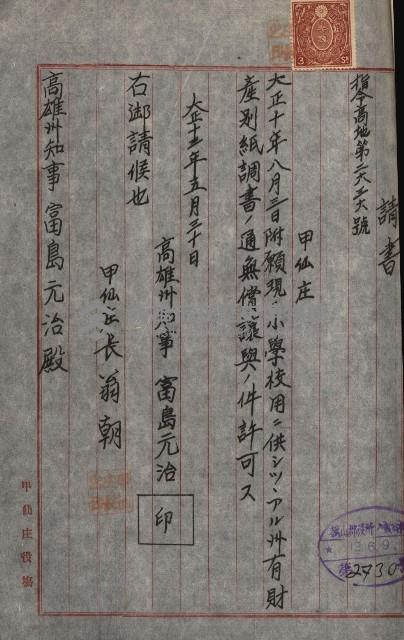 請書
指令高地第二六三六號
甲仙庄
大正十年八月三日附願現ニ小學校用ニ供シツヽアル州有財
產別紙調書ノ通無償讓與ノ件許可ス
大正十三年五月三十日
高雄州知事 富島元治 印
右御請候也
甲仙庄長 翁朝
高雄州知事 富島元治殿
甲仙庄役場
3 Sn
13.6.9
2730